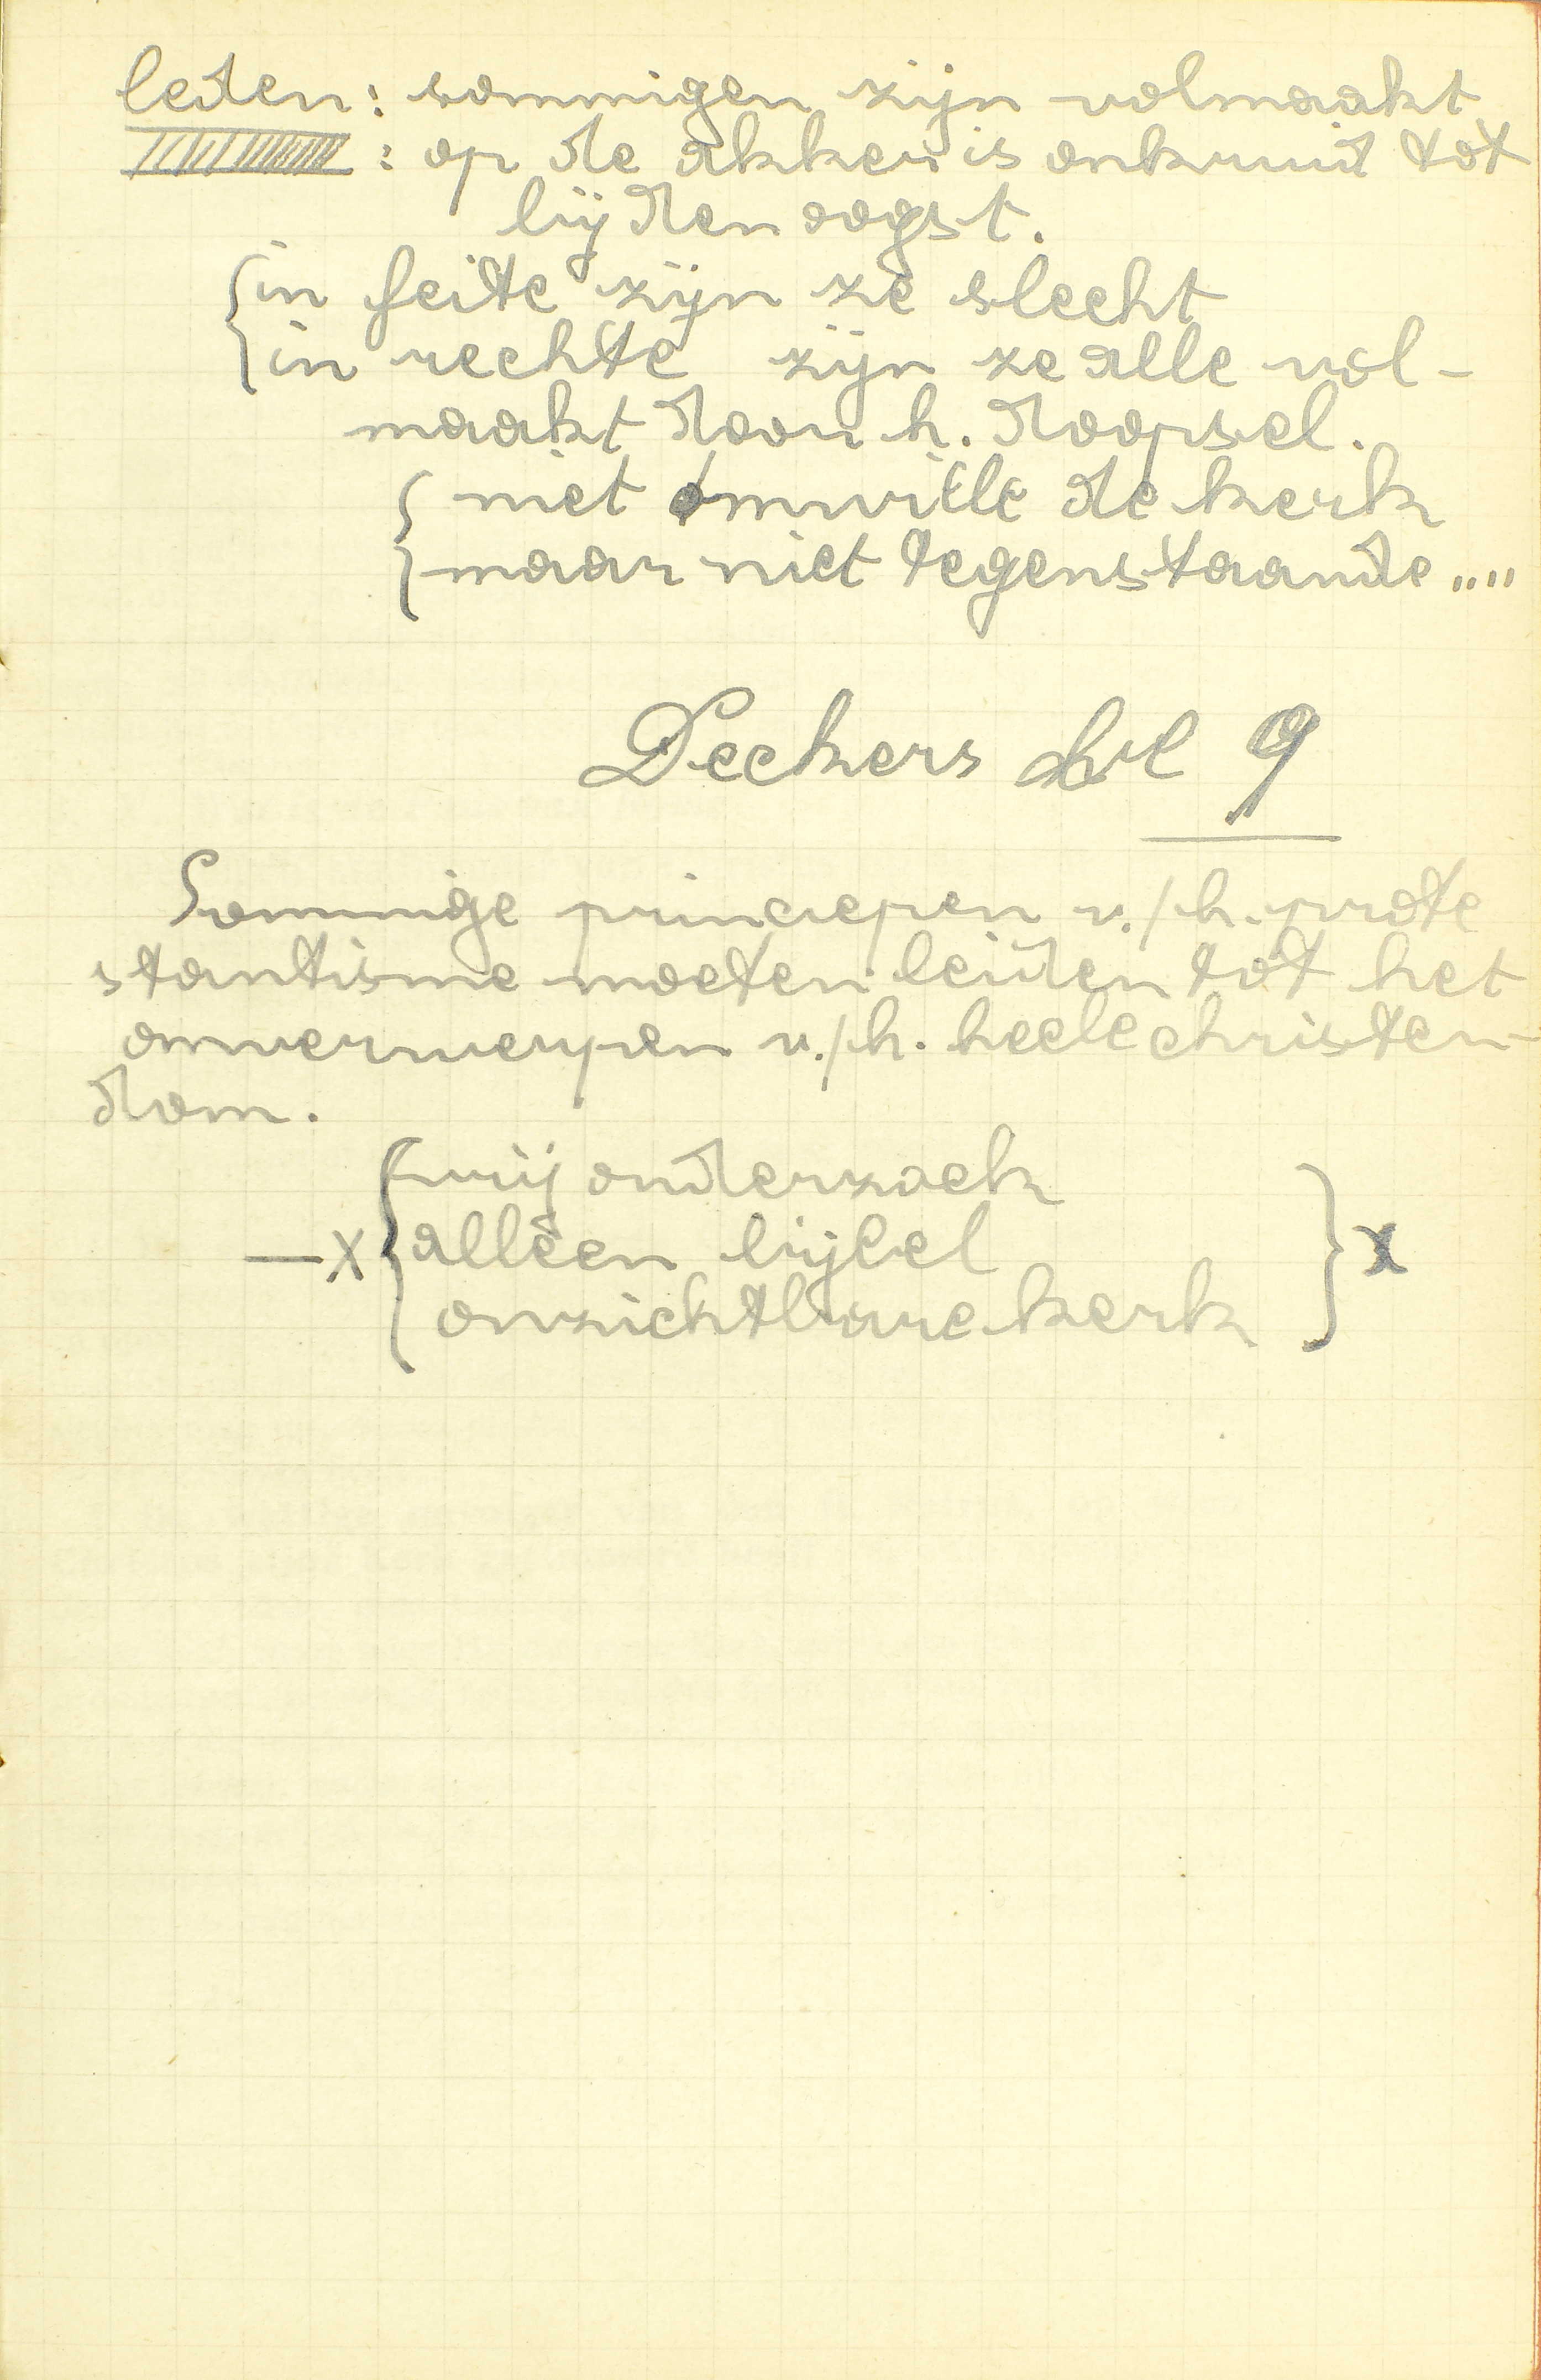 leden: sommigen zijn volmaakt
: op de akker is onkruid tot
bij den oogst.
{in feite zijn ze slecht
{in rechte zijn ze alle vol-
maakt door h. doopsel.
{ niet omwille de kerk
{ maar niet tegenstaande ....
Deckers blz 9
Sommige princiepen v./h. prote
stantisme moeten leiden tot het
omverwerpen v./h. heele christen-
dom.
{vrij onderzoek
—x {alleen bijbel } x
onzichtbare kerk